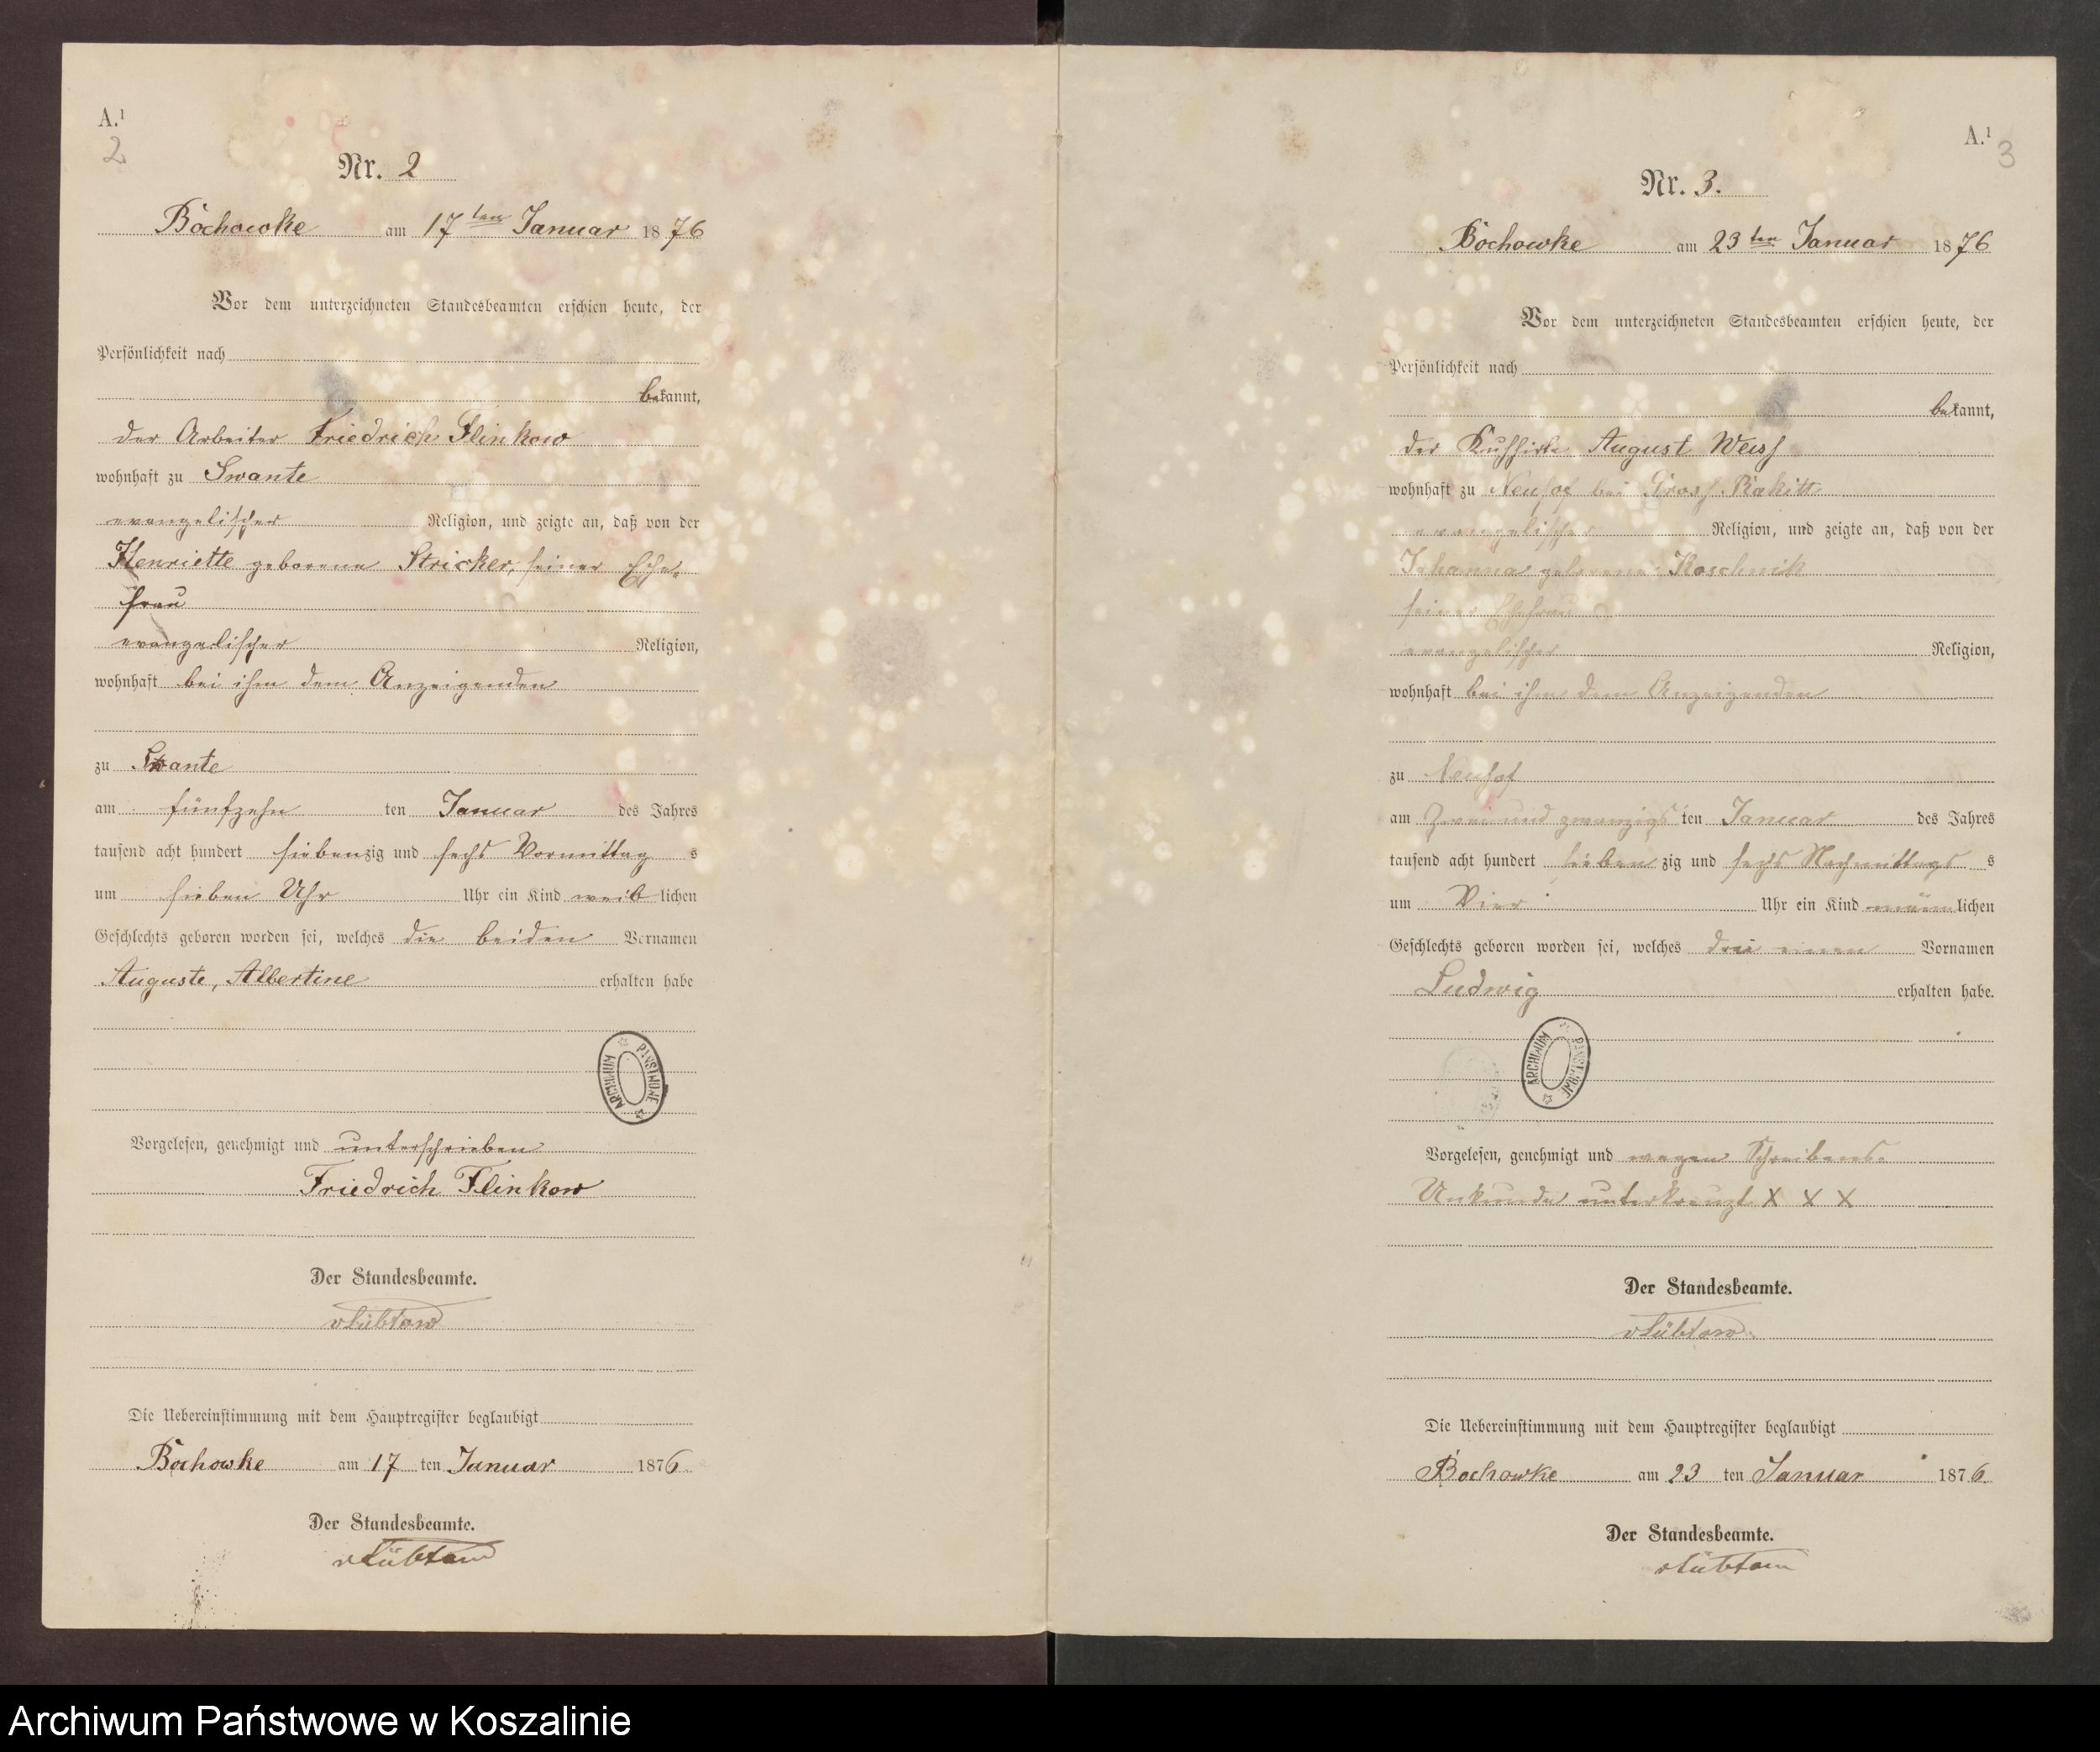 A.¹
2
Nr. 2
Bochowke am 17ten Januar 1876
Vor dem unterzeichneten Standesbeamten erschien heute, der
Persönlichkeit nach
bekannt,
der Arbeiter Friedrich Flinkow
wohnhaft zu Swante
evangelischer Religion, und zeigte an, daß von der
Henriette geborene Stricker, seiner Ehe-
frau
evangelischer Religion,
wohnhaft bei ihm dem Anzeigenden
zu Swante
am fünfzehn ten Januar des Jahres
tausend acht hundert siebenzig und sechs Vormittag s
um sieben Uhr Uhr ein Kind weiblichen
Geschlechts geboren worden sei, welches die beiden Vornamen
Auguste, Albertine erhalten habe
ARCHIWUM PAŃSTWOWE
Vorgelesen, genehmigt und unterschrieben
Friedrich Flinkow
Der Standesbeamte.
vLübtow
Die Uebereinstimmung mit dem Hauptregister beglaubigt
Bochowke am 17 ten Januar 1876.
Der Standesbeamte.
vLübtow
A.¹
3
Nr. 3.
Bochowke am 23ten Januar 1876
Vor dem unterzeichneten Standesbeamten erschien heute, der
Persönlichkeit nach
bekannt,
der Kuhhirte August Weiss
wohnhaft zu Neuhof bei Gross Rakitt
evangelischer Religion, und zeigte an, daß von der
Johanna geborene Koschnik
seiner Ehefrau
evangelischer Religion,
wohnhaft bei ihm dem Anzeigenden
zu Neuhof
am Zwei und zwanzigs ten Januar des Jahres
tausend acht hundert sieben zig und sechs Nachmittags s
um Vier Uhr ein Kind männlichen
Geschlechts geboren worden sei, welches den einen Vornamen
Ludwig erhalten habe.
ARCHIWUM PAŃSTWOWE
Vorgelesen, genehmigt und wegen Schreibens-
Unkunde unterkreuzt X X X
Der Standesbeamte.
vLübtow
Die Uebereinstimmung mit dem Hauptregister beglaubigt
Bochowke am 23 ten Januar 1876.
Der Standesbeamte.
vLübtow
Archiwum Państwowe w Koszalinie